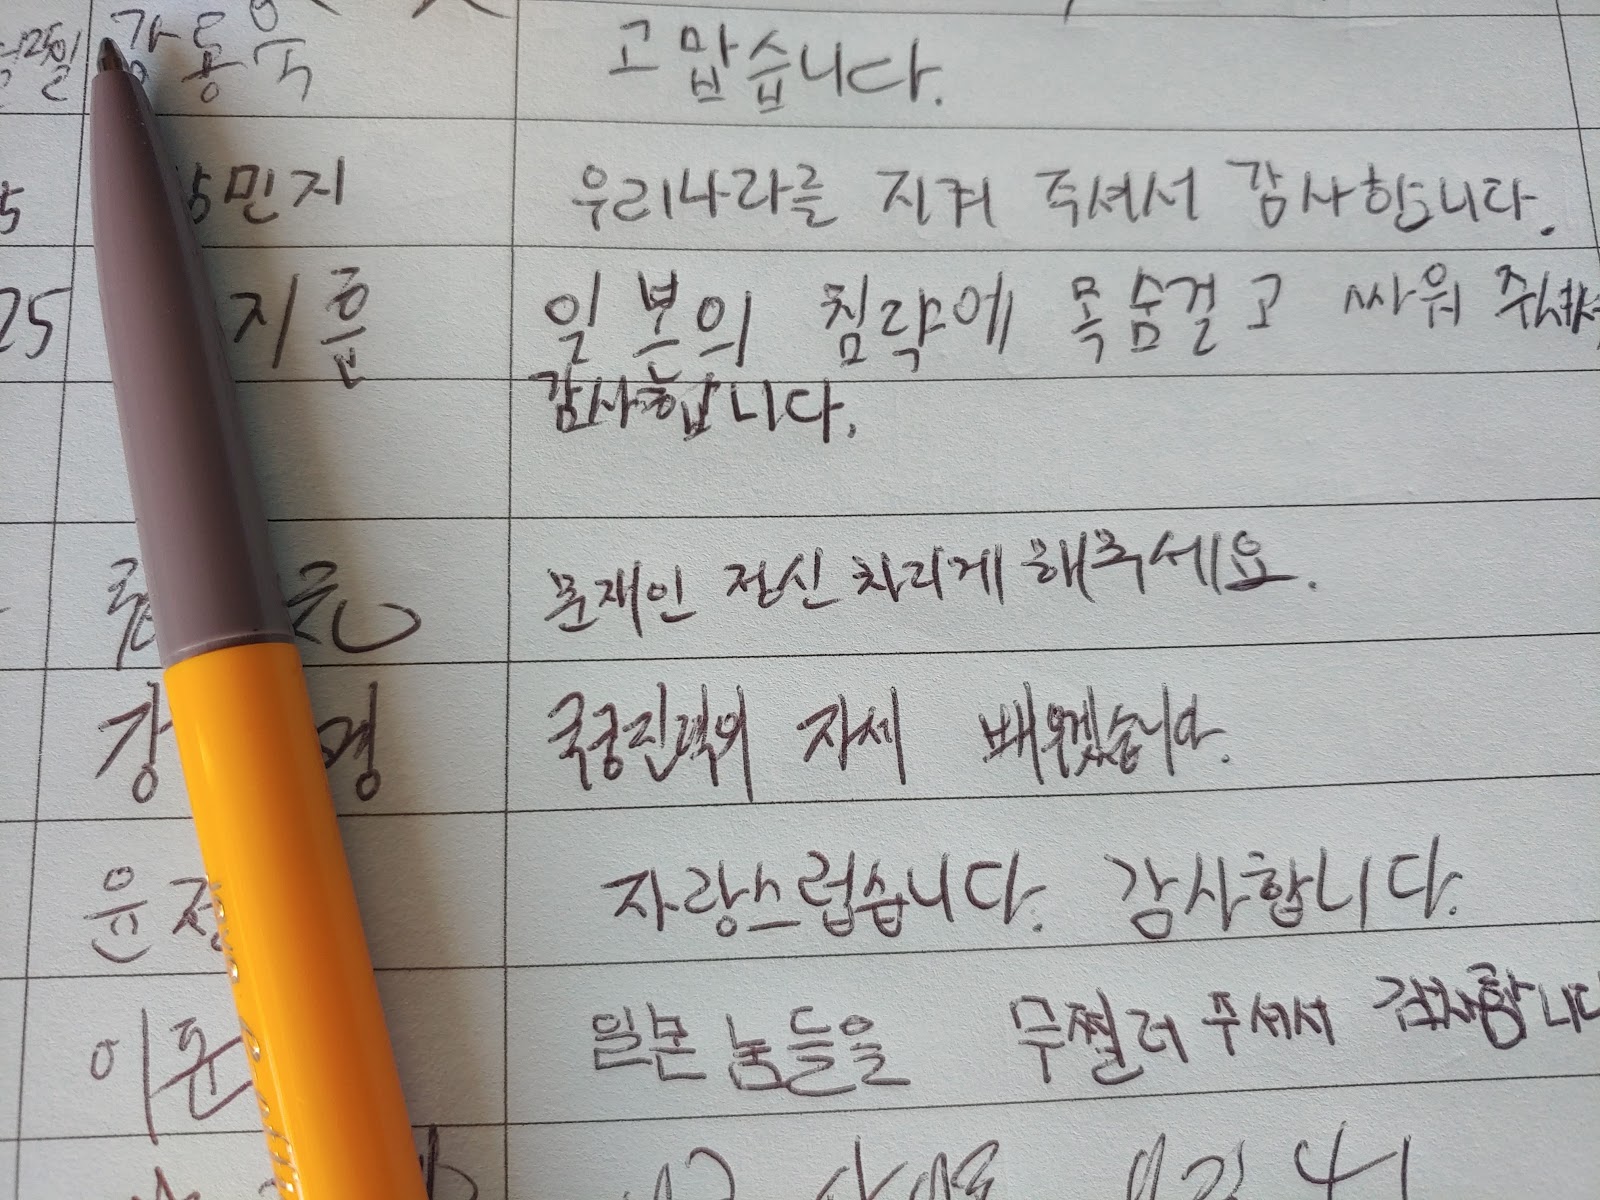 강동욱 고맙습니다.
5 민지 우리나라를 지켜 주셔서 감사합니다.
25 지훈 일본의 침략에 목숨걸고 싸워 주셔서
감사합니다.
문재인 정신 차리게 해주세요.
강 명 국궁진력의 자세 배우겠습니다.
윤정 자랑스럽습니다. 감사합니다.
이준 일본 놈들을 무찔러 주셔서 감사합니다